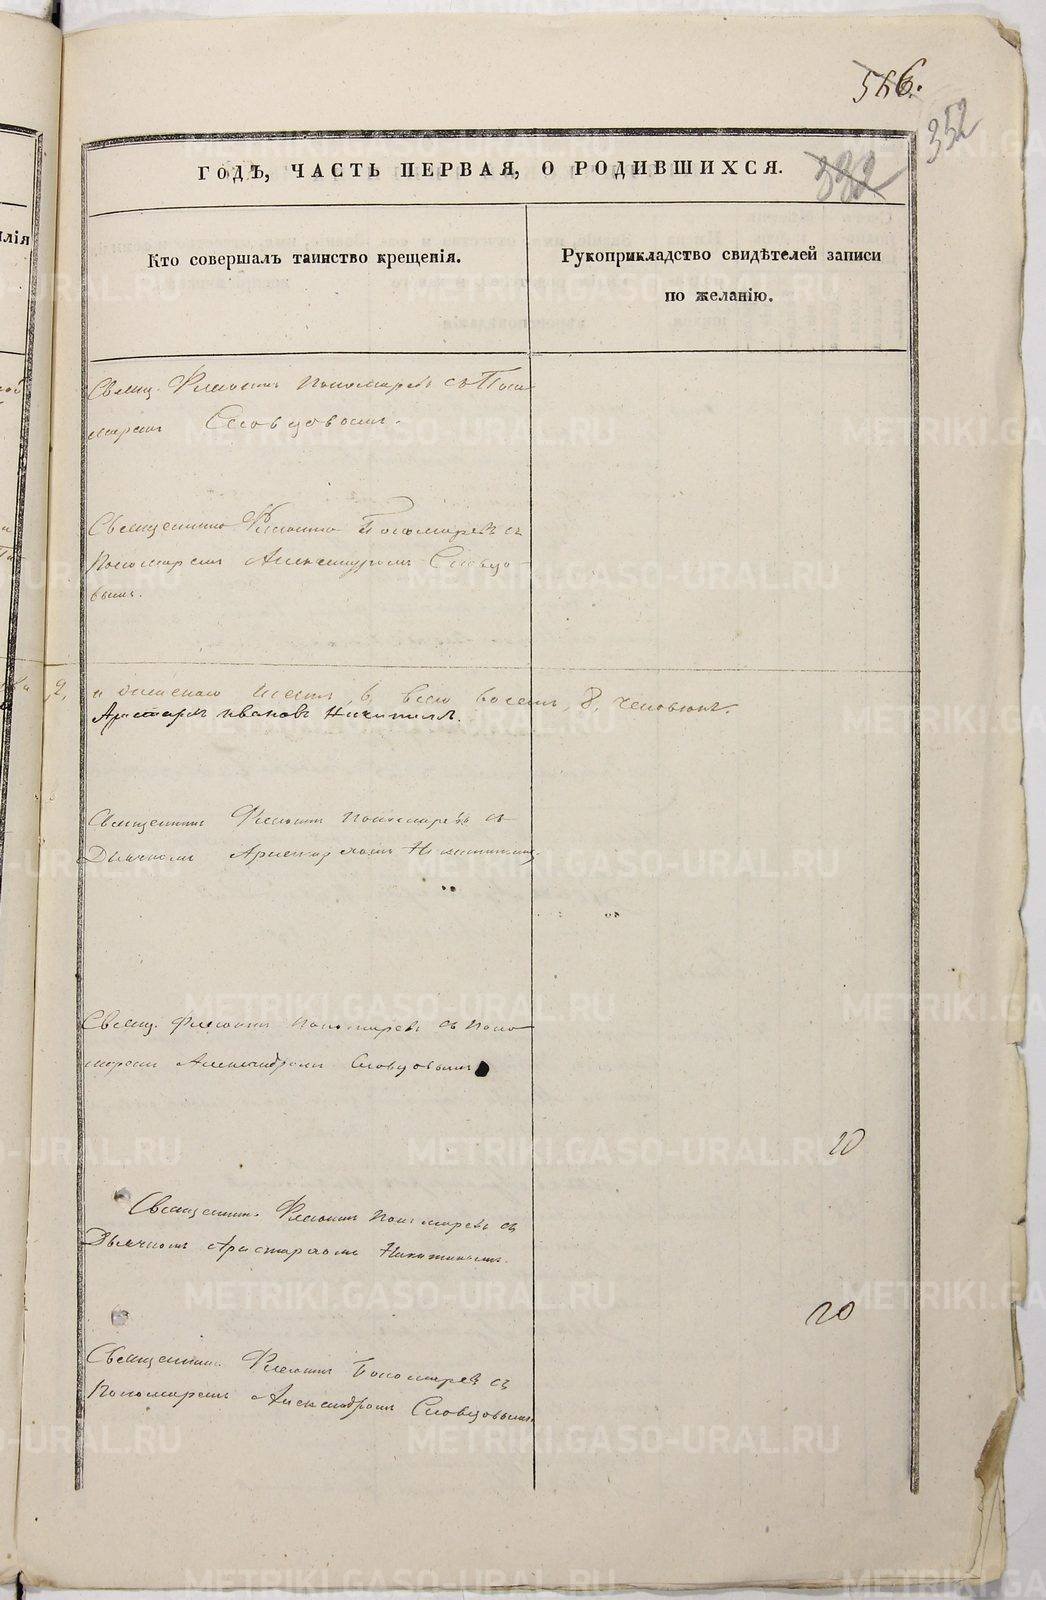 566.
352
332
ГОДЪ, ЧАСТЬ ПЕРВАЯ, О РОДИВШИХСЯ.
Кто совершалъ таинство крещенія.
Рукоприкладство свидѣтелей записи
по желанію.
Свящ. Филиппъ Пономаревъ съ Поно-
маремъ Словцовымъ.
Священникъ Филиппъ Пономаревъ съ
Пономаремъ Александромъ Словцо-
вымъ.
2, и женскаго шесть, 6, всего восемь, 8, человѣкъ.
Аристархъ Ивановъ Никитинъ.
Священникъ Филиппъ Пономаревъ съ
Дьячкомъ Аристархомъ Никитинымъ
Свящ. Филиппъ Пономаревъ съ Поно-
маремъ Александромъ Словцовымъ
20
Священникъ Филиппъ Пономаревъ съ
Дьячкомъ Аристархомъ Никитинымъ.
20
Священникъ Филиппъ Пономаревъ съ
Пономаремъ Александромъ Словцовымъ.
METRIKI.GASO-URAL.RU